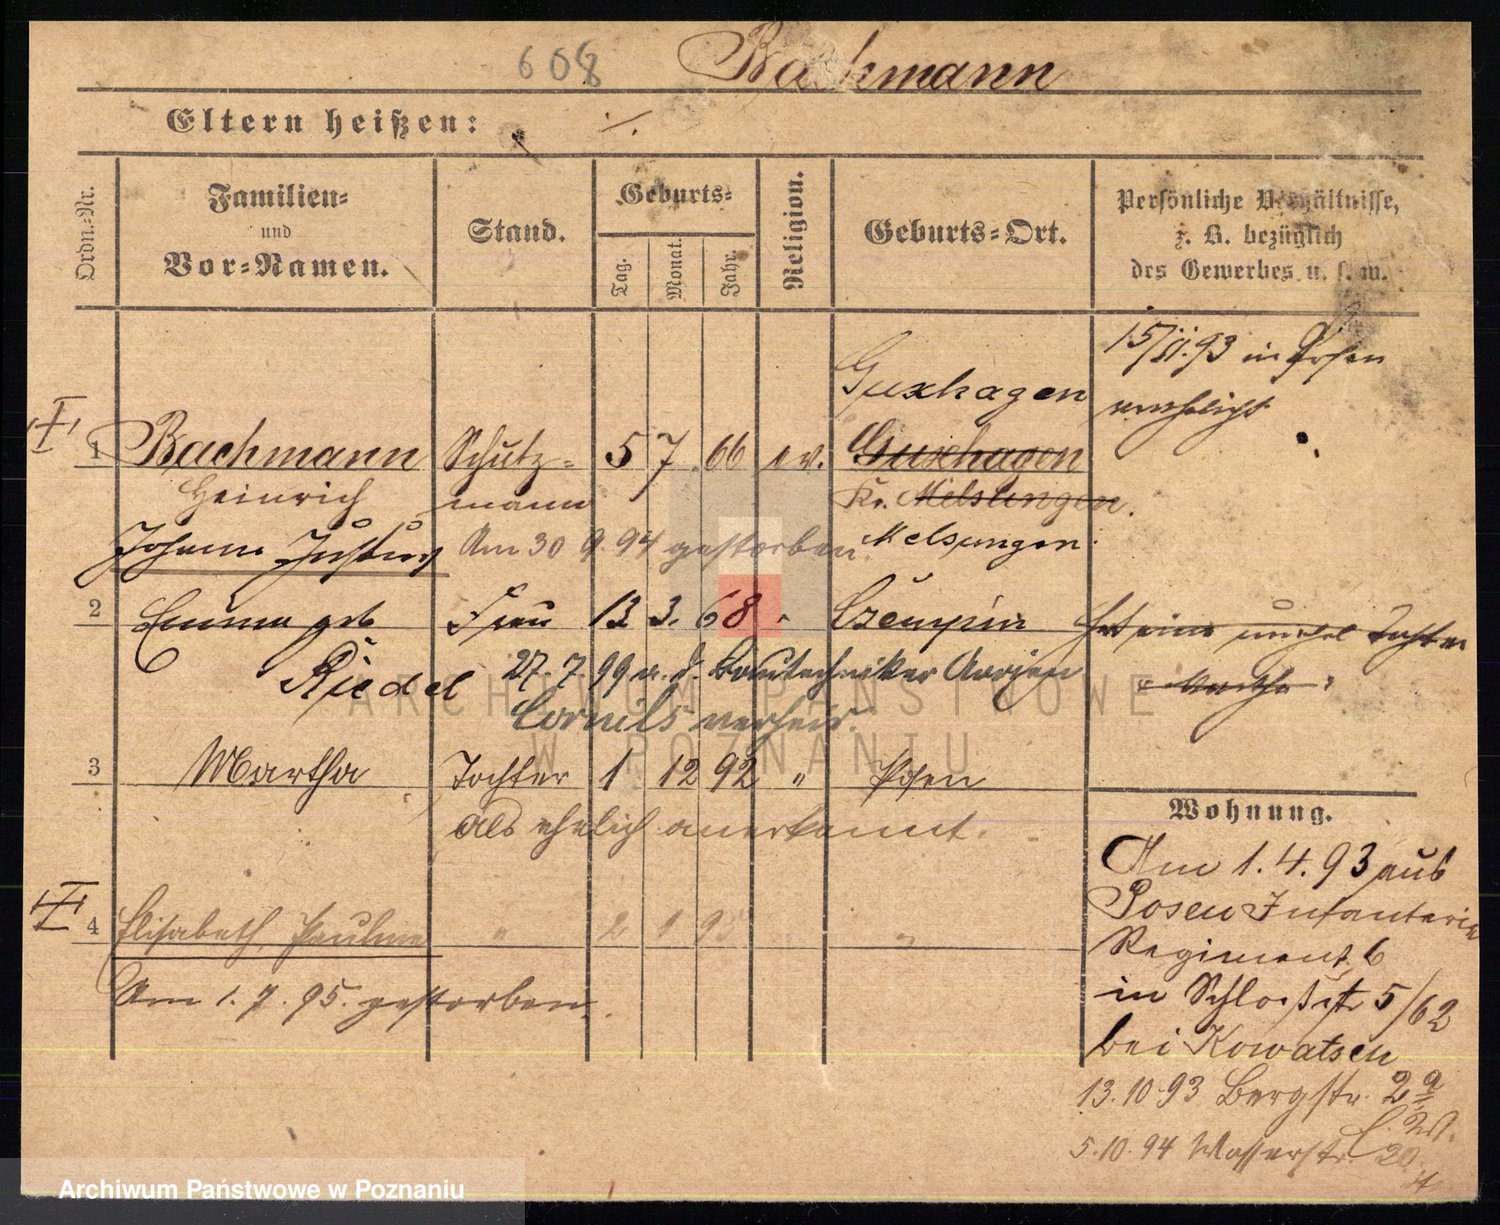 608 Bachmann
Eltern heißen: ./.
Ordn.=Nr.
Familien=
und
Vor=Namen.
Stand.
Geburts=
Tag. Monat. Jahr.
Religion.
Geburts=Ort.
Persönliche Verhältnisse,
z. B. bezüglich
des Gewerbes u. s. w.
15/II.93 in Posen
verehelicht
Guxhagen
1 Bachmann Schutz= 5 7 66 ev. Guxhagen
Heinrich mann Kr. Melsungen.
Johann Justus Am 30 9. 94 gestorben. Melsungen.
2 Emma geb Frau 13 3. 68 " Czempin Hat eine unehel Tochter
Riedel 27. 7. 99 m. d. Bautechniker
"Martha"
Cornils verheir.
3 Martha Tochter 1 12 92 " Posen
als ehelich anerkannt.
II
4 Elisabeth Pauline " 2 1 95 "
Am 1. 7. 95. gestorben.
Wohnung.
Am 1. 4. 93 aus
Posen Infanterie
Regiment 6
in Schloßstr 5/62
bei Kowatsch
13.10.93 Bergstr. 2
5.10.94 Wasserstr.
ARCHIWUM PAŃSTWOWE
W POZNANIU
Archiwum Państwowe w Poznaniu